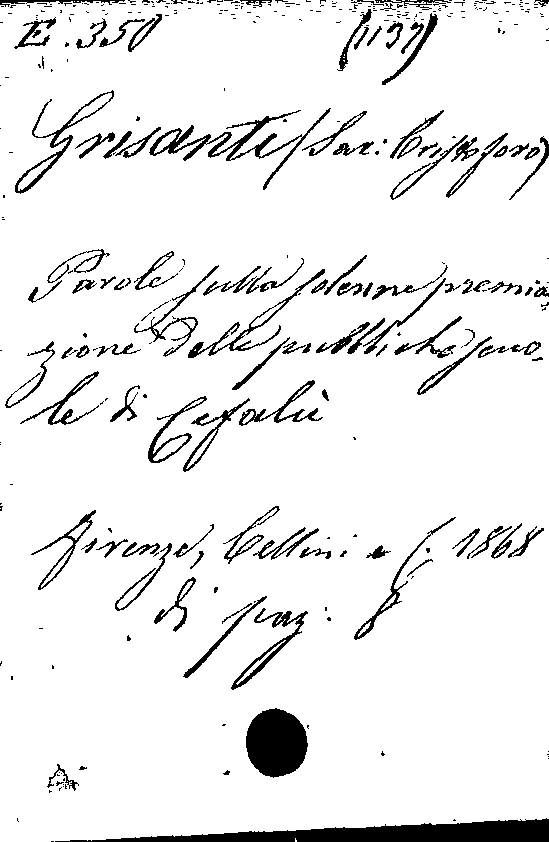 E. 350 (1137)
Grisanti (Sac: Cristoforo)
Parole sulla solenne premia-
zione delle pubbliche scuo-
le di Cefalù
Firenze, Cellini e C. 1868
di pag: 8